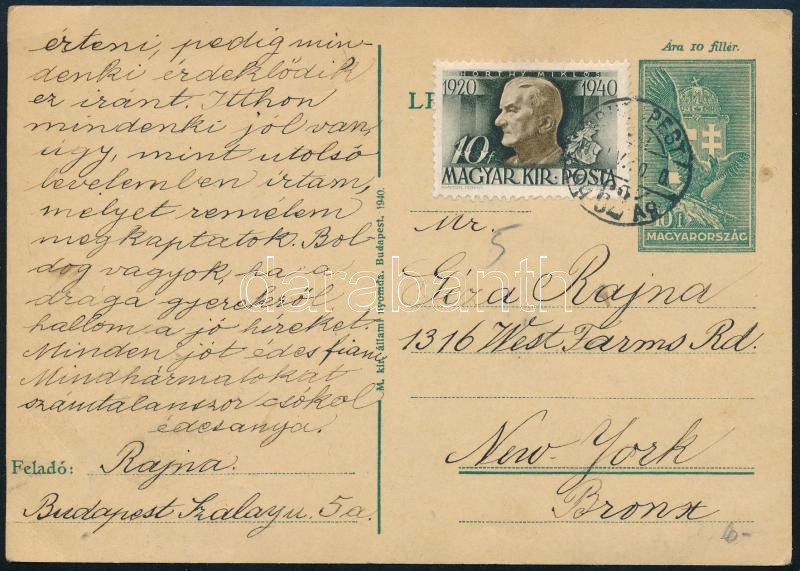 érteni, pedig min-
denki érdeklődik
ez iránt. Itthon
mindenki jól van,
úgy, mint utolsó
levelemben írtam,
melyet remélem
megkaptatok. Bol-
dog vagyok, ha a
drága gyerekről
hallom a jó híreket.
Minden jót édes fiam
Mindhármatokat
számtalanszor csókol
édesanya.
Feladó: Rajna.
Budapest Szalay u. 5a.
M. kir. állami nyomda. Budapest. 1940.
Ára 10 fillér.
HORTHY MIKLÓS
1920 1940
10f
MAGYAR KIR. POSTA
10f
MAGYARORSZÁG
Mr.
5
Géza Rajna
1316 West Farms Rd.
New-York
Bronx
darabanth